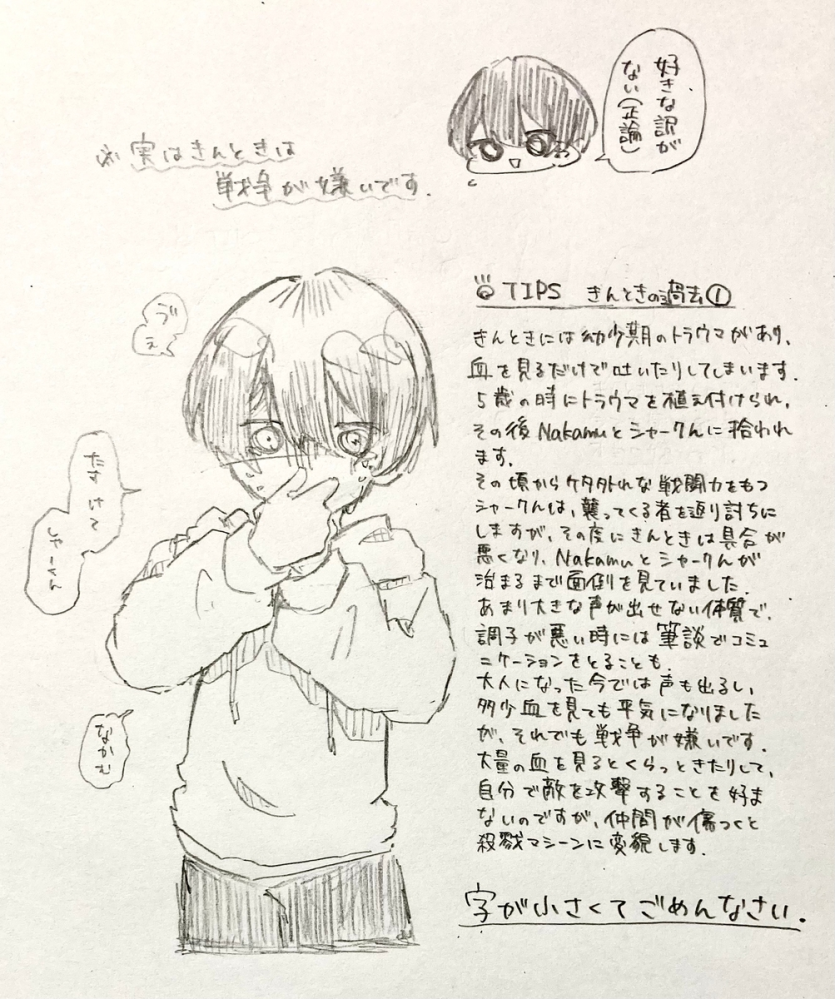 好きな訳が
ない(正論)
※実はきんときは
戦争が嫌いです.
TIPS きんときの過去①
きんときには幼少期のトラウマがあり、
血を見るだけで吐いたりしてしまいます.
5歳の時にトラウマを植え付けられ,
その後Nakamuとシャークんに拾われ
ます.
その頃からケタ外れな戦闘力をもつ
シャークんは、襲ってくる者を返り討ちに
しますが、その度にきんときは具合が
悪くなり、Nakamuとシャークんが
治まるまで面倒を見ていました.
あまり大きな声が出せない体質で、
調子が悪い時には筆談でコミュ
ニケーションをとることも.
大人になった今では声も出るし、
多少血を見ても平気になりました
が、それでも戦争が嫌いです.
大量の血を見るとくらっときたりして、
自分で敵を攻撃することを好ま
ないのですが、仲間が傷つくと
殺戮マシーンに変貌します.
字が小さくてごめんなさい.
ゔ
ぇ
たすけて
しゃーくん
なかむ